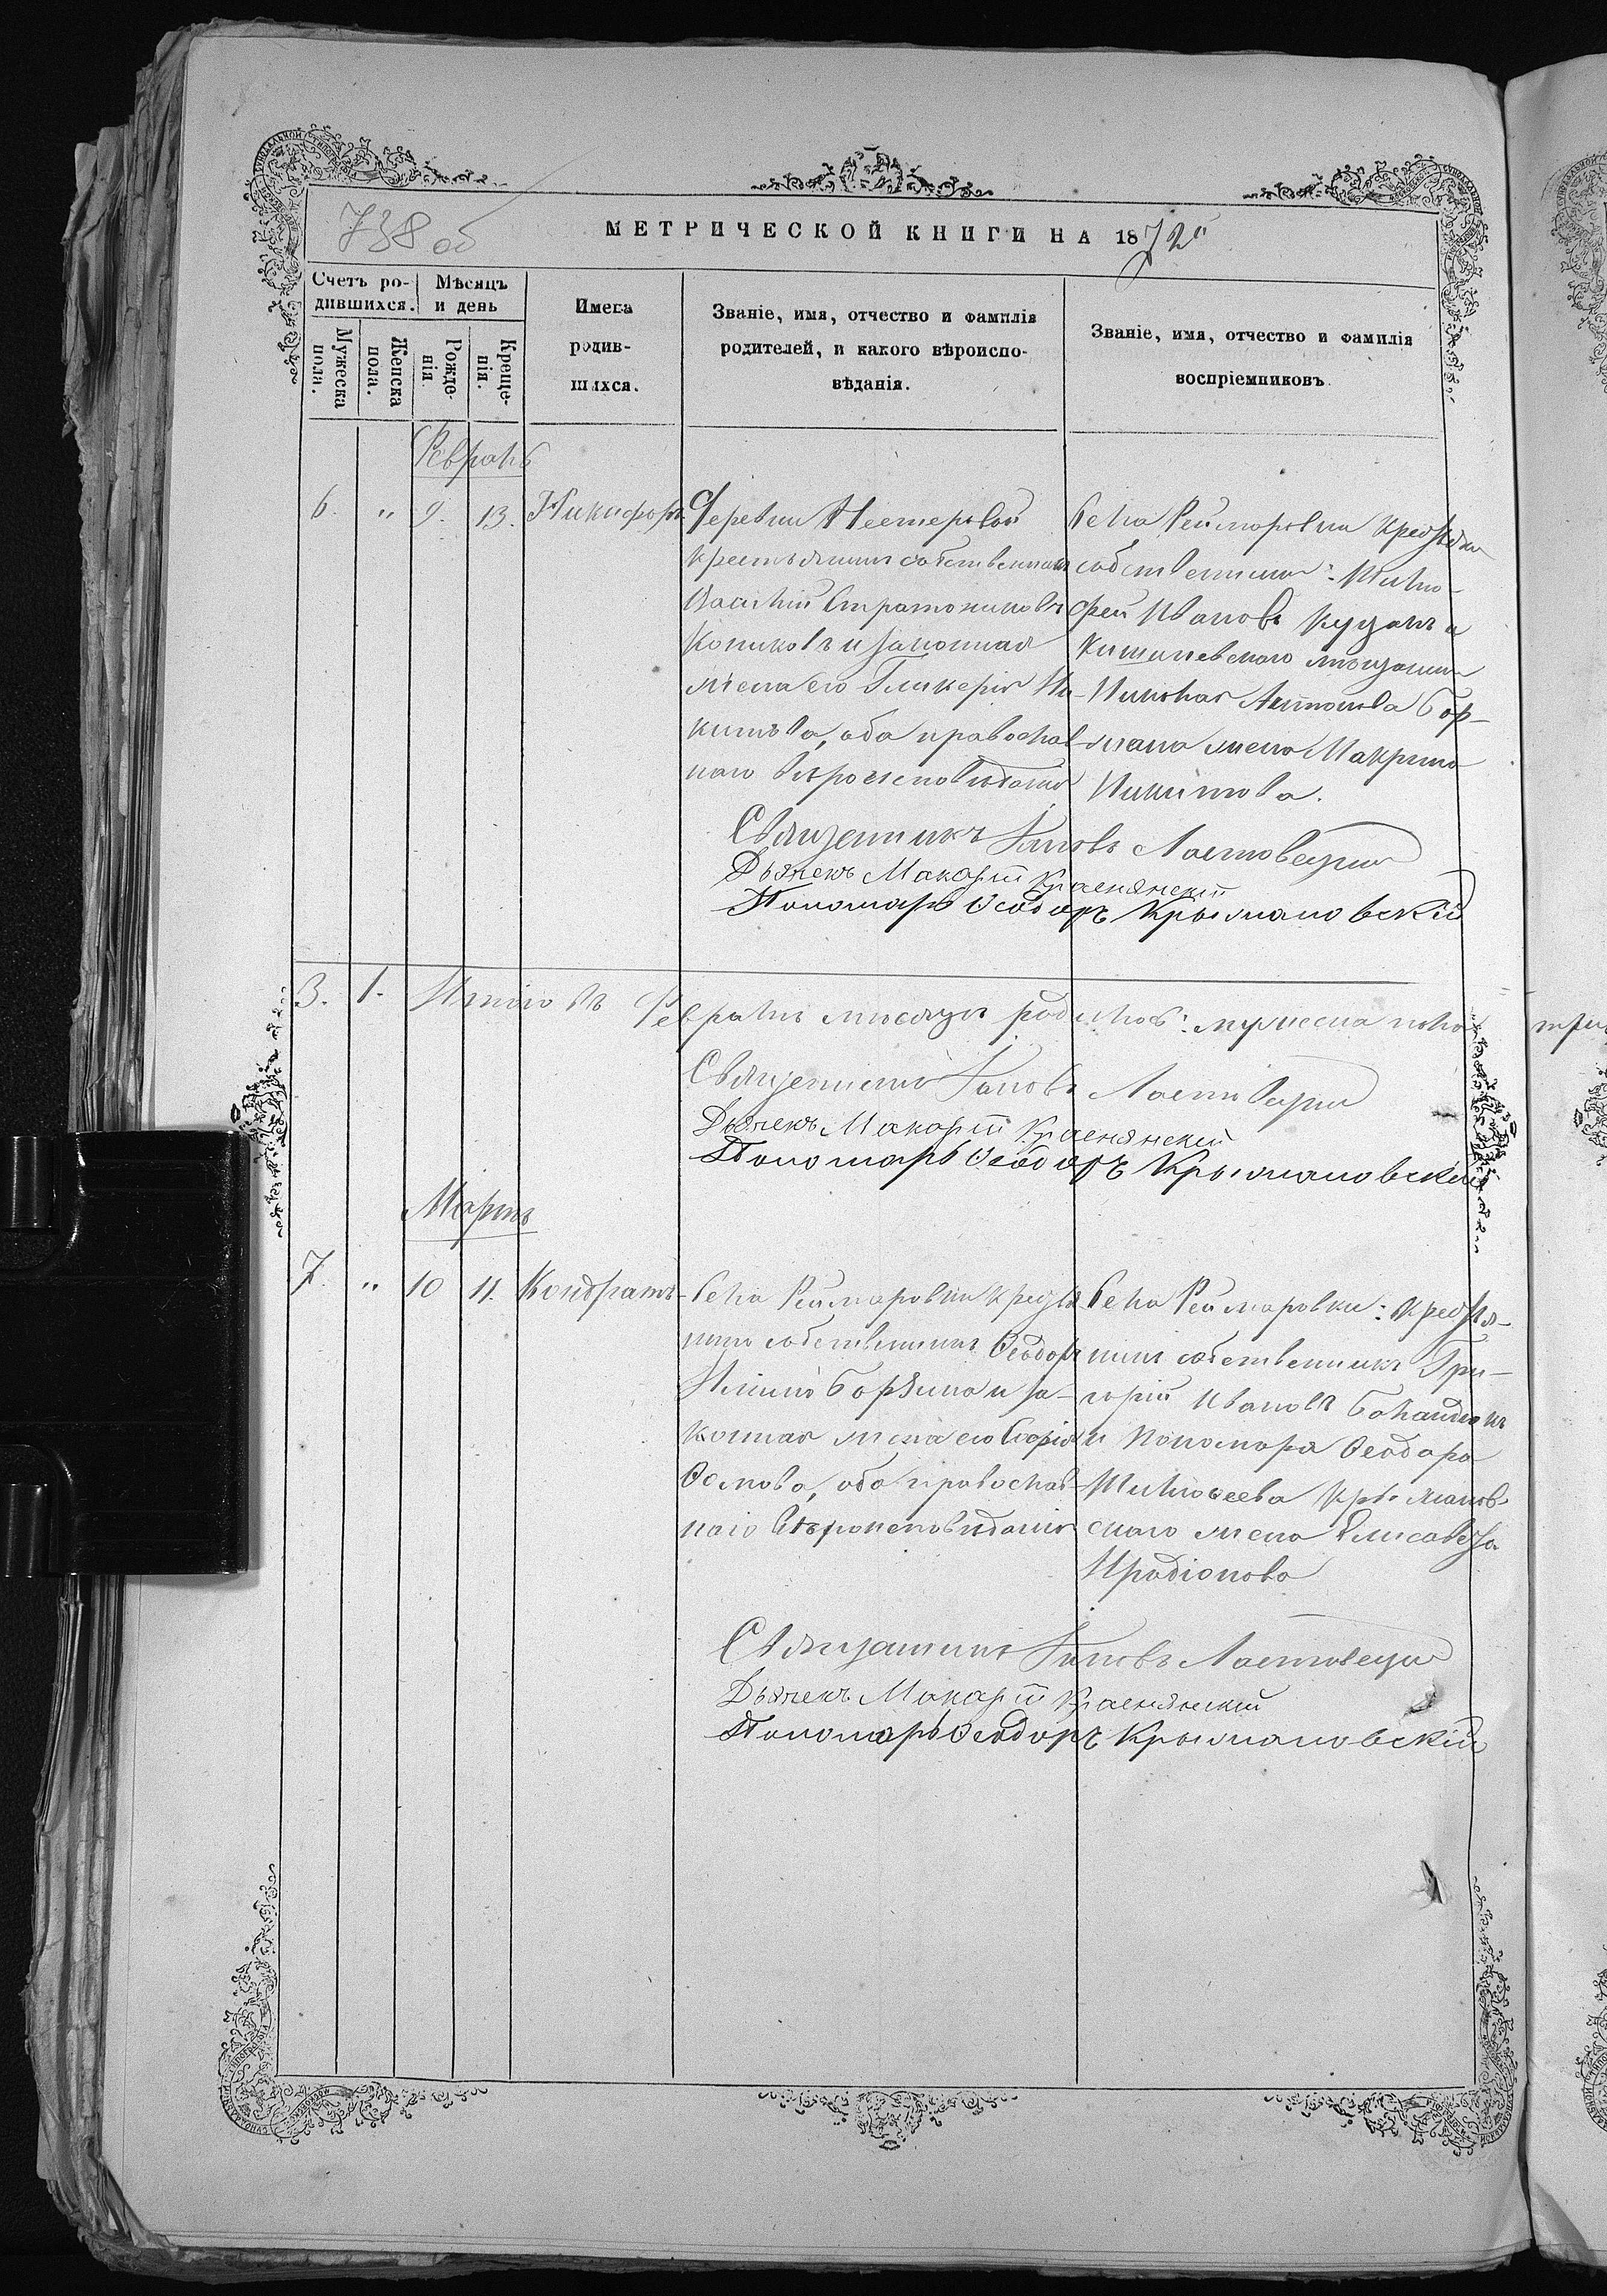 738 об
МЕТРИЧЕСКОЙ КНИГИ НА 1872й
Счетъ ро-
дившихся.
Мѣсяцъ
и день
Мужеска
пола.
Женска
пола.
Рожде-
нія
Креще-
нія.
Имена
родив-
шихся.
Званіе, имя, отчество и фамилія
родителей, и какого вѣроиспо-
вѣданія.
Званіе, имя, отчество и фамилія
воспріемниковъ
Февраль
6. " 9. 13. Никифоръ
Деревни Нестеровой
крестьянинъ собственникъ
Василій Стратониковъ
Копиковъ и законная
жена его Гликерія Ни-
китова, оба православ-
наго вѣроисповѣданія
Села Реймаровки
собственники: Тимо-
фей Ивановъ Кузанъ и
Кишиневскаго мещанина
Николая Антонова Бор-
мана жена Макрина
Никитова.
Священникъ Іаковъ Ластовецкій
Дьячекъ Макарій Краснянскій
Пономарь Ѳеодоръ Крыжановскій
3. 1. Итого въ Февралѣ мѣсяцѣ родилось: мужеска пола
Священникъ Іаковъ Ластовецкій
Дьячекъ Макарій Краснянскій
Пономарь Ѳеодоръ Крыжановскій
Мартъ
7. " 10 11. Кондратъ
Села Реймаровки крестья
нинъ собственникъ Ѳеодоръ
Ильинъ и за-
конная жена его
оба православ-
наго вѣроисповѣданія
Села Реймаровки: крестья-
нинъ собственникъ Гри-
горій Ивановъ
и Пономаря Ѳеодора
Тимоѳеева Крыжанов-
скаго жена Елисавета
Иродіонова
Священникъ Іаковъ Ластовецкій
Дьячекъ Макарій Краснянскій
Пономарь Ѳеодоръ Крыжановскій